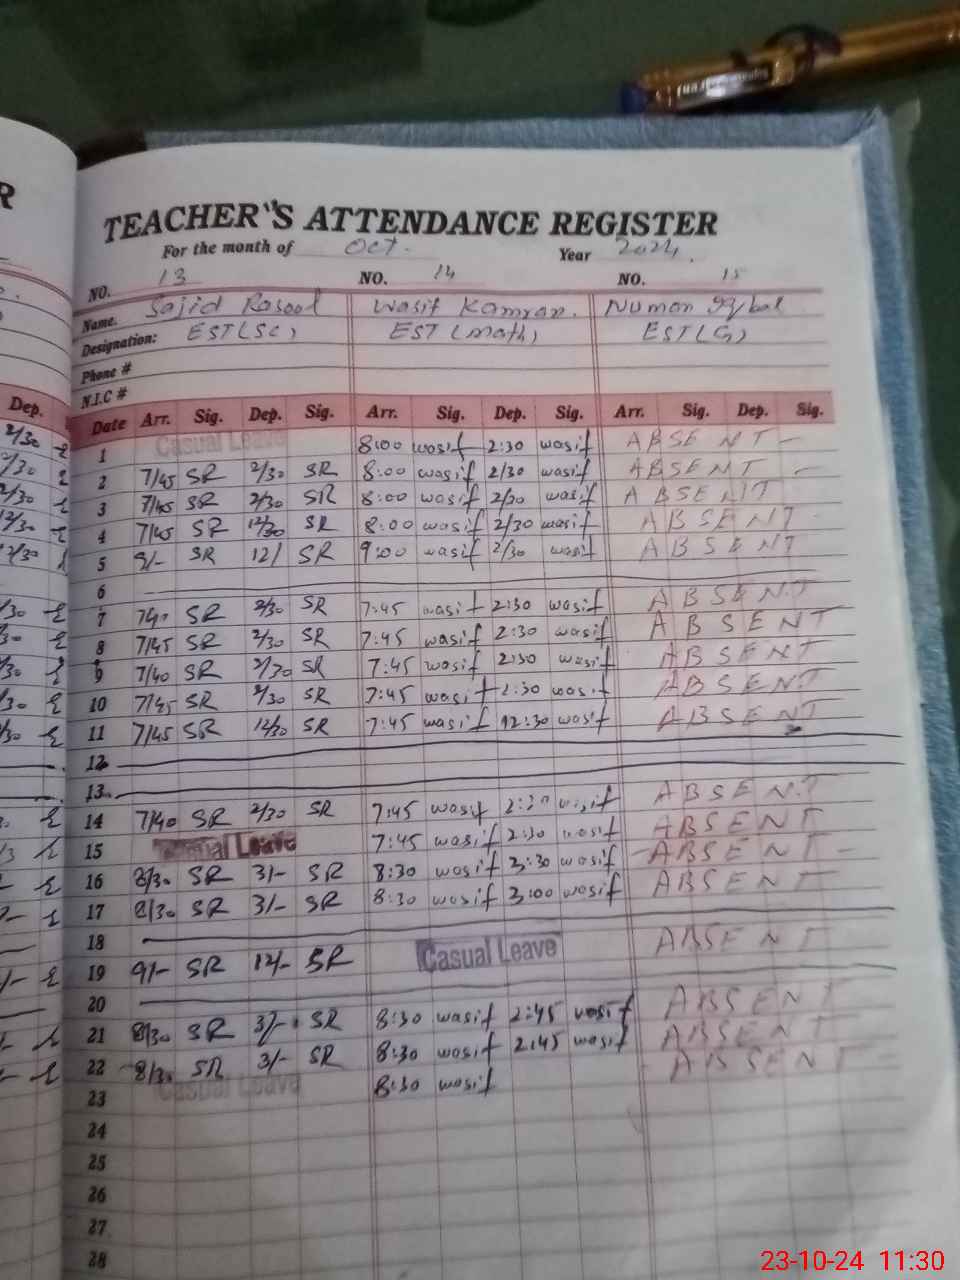 TEACHER'S ATTENDANCE REGISTER
For the month of Oct. Year 2024.
NO. 13 NO. 14 NO. 15
Name. Sajid Rasool Wasif Kamran. Numan Iqbal
Designation: EST(SC) EST (math) EST(G)
Phone #
N.I.C #
Dep. Date Arr. Sig. Dep. Sig. Arr. Sig. Dep. Sig. Arr. Sig. Dep. Sig.
1 Casual Leave 8:00 wasif 2:30 wasif ABSENT
2 7/45 SR 2/30 SR 8:00 wasif 2/30 wasif ABSENT
3 7/45 SR 2/30 SR 8:00 wasif 2/30 wasif ABSENT
4 7/45 SR 12/30 SR 8:00 wasif 2/30 wasif ABSENT
5 8/- SR 12/ SR 9:00 wasif 2/30 wasif ABSENT
6
7 7/40 SR 2/30 SR 7:45 wasif 2:30 wasif ABSENT
8 7/45 SR 2/30 SR 7:45 wasif 2:30 wasif ABSENT
9 7/40 SR 2/30 SR 7:45 wasif 2:30 wasif ABSENT
10 7/45 SR 2/30 SR 7:45 wasif 2:30 wasif ABSENT
11 7/45 SR 12/30 SR 7:45 wasif 12:30 wasif ABSENT
12
13
14 7/40 SR 2/30 SR 7:45 wasif 2:30 wasif ABSENT
15 Casual Leave 7:45 wasif 2:30 wasif ABSENT
16 8/30 SR 3/- SR 8:30 wasif 3:30 wasif ABSENT
17 8/30 SR 3/- SR 8:30 wasif 3:00 wasif ABSENT
18
19 9/- SR 12/- SR Casual Leave ABSENT
20
21 8/30 SR 3/- SR 8:30 wasif 2:45 wasif ABSENT
22 8/30 SR 3/- SR 8:30 wasif 2:45 wasif ABSENT
23 Casual Leave 8:30 wasif ABSENT
24
25
26
27
28
23-10-24 11:30